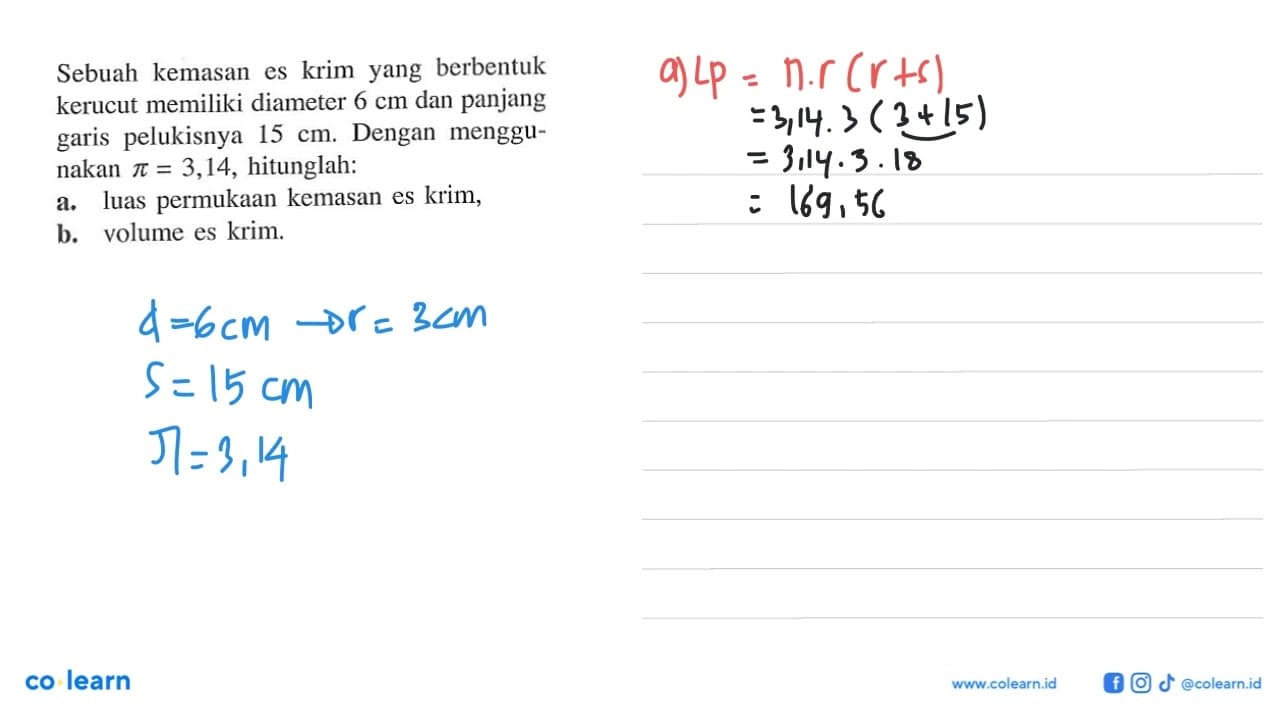 Sebuah kemasan es krim yang berbentuk
kerucut memiliki diameter 6 cm dan panjang
garis pelukisnya 15 cm. Dengan menggu-
nakan π = 3,14, hitunglah:
a. luas permukaan kemasan es krim,
b. volume es krim.
d = 6 cm → r = 3 cm
s = 15 cm
π = 3,14
a) Lp = π.r (r+s)
= 3,14 . 3 (3 + 15)
= 3,14 . 3 . 18
= 169,56
co learn
www.colearn.id
@colearn.id